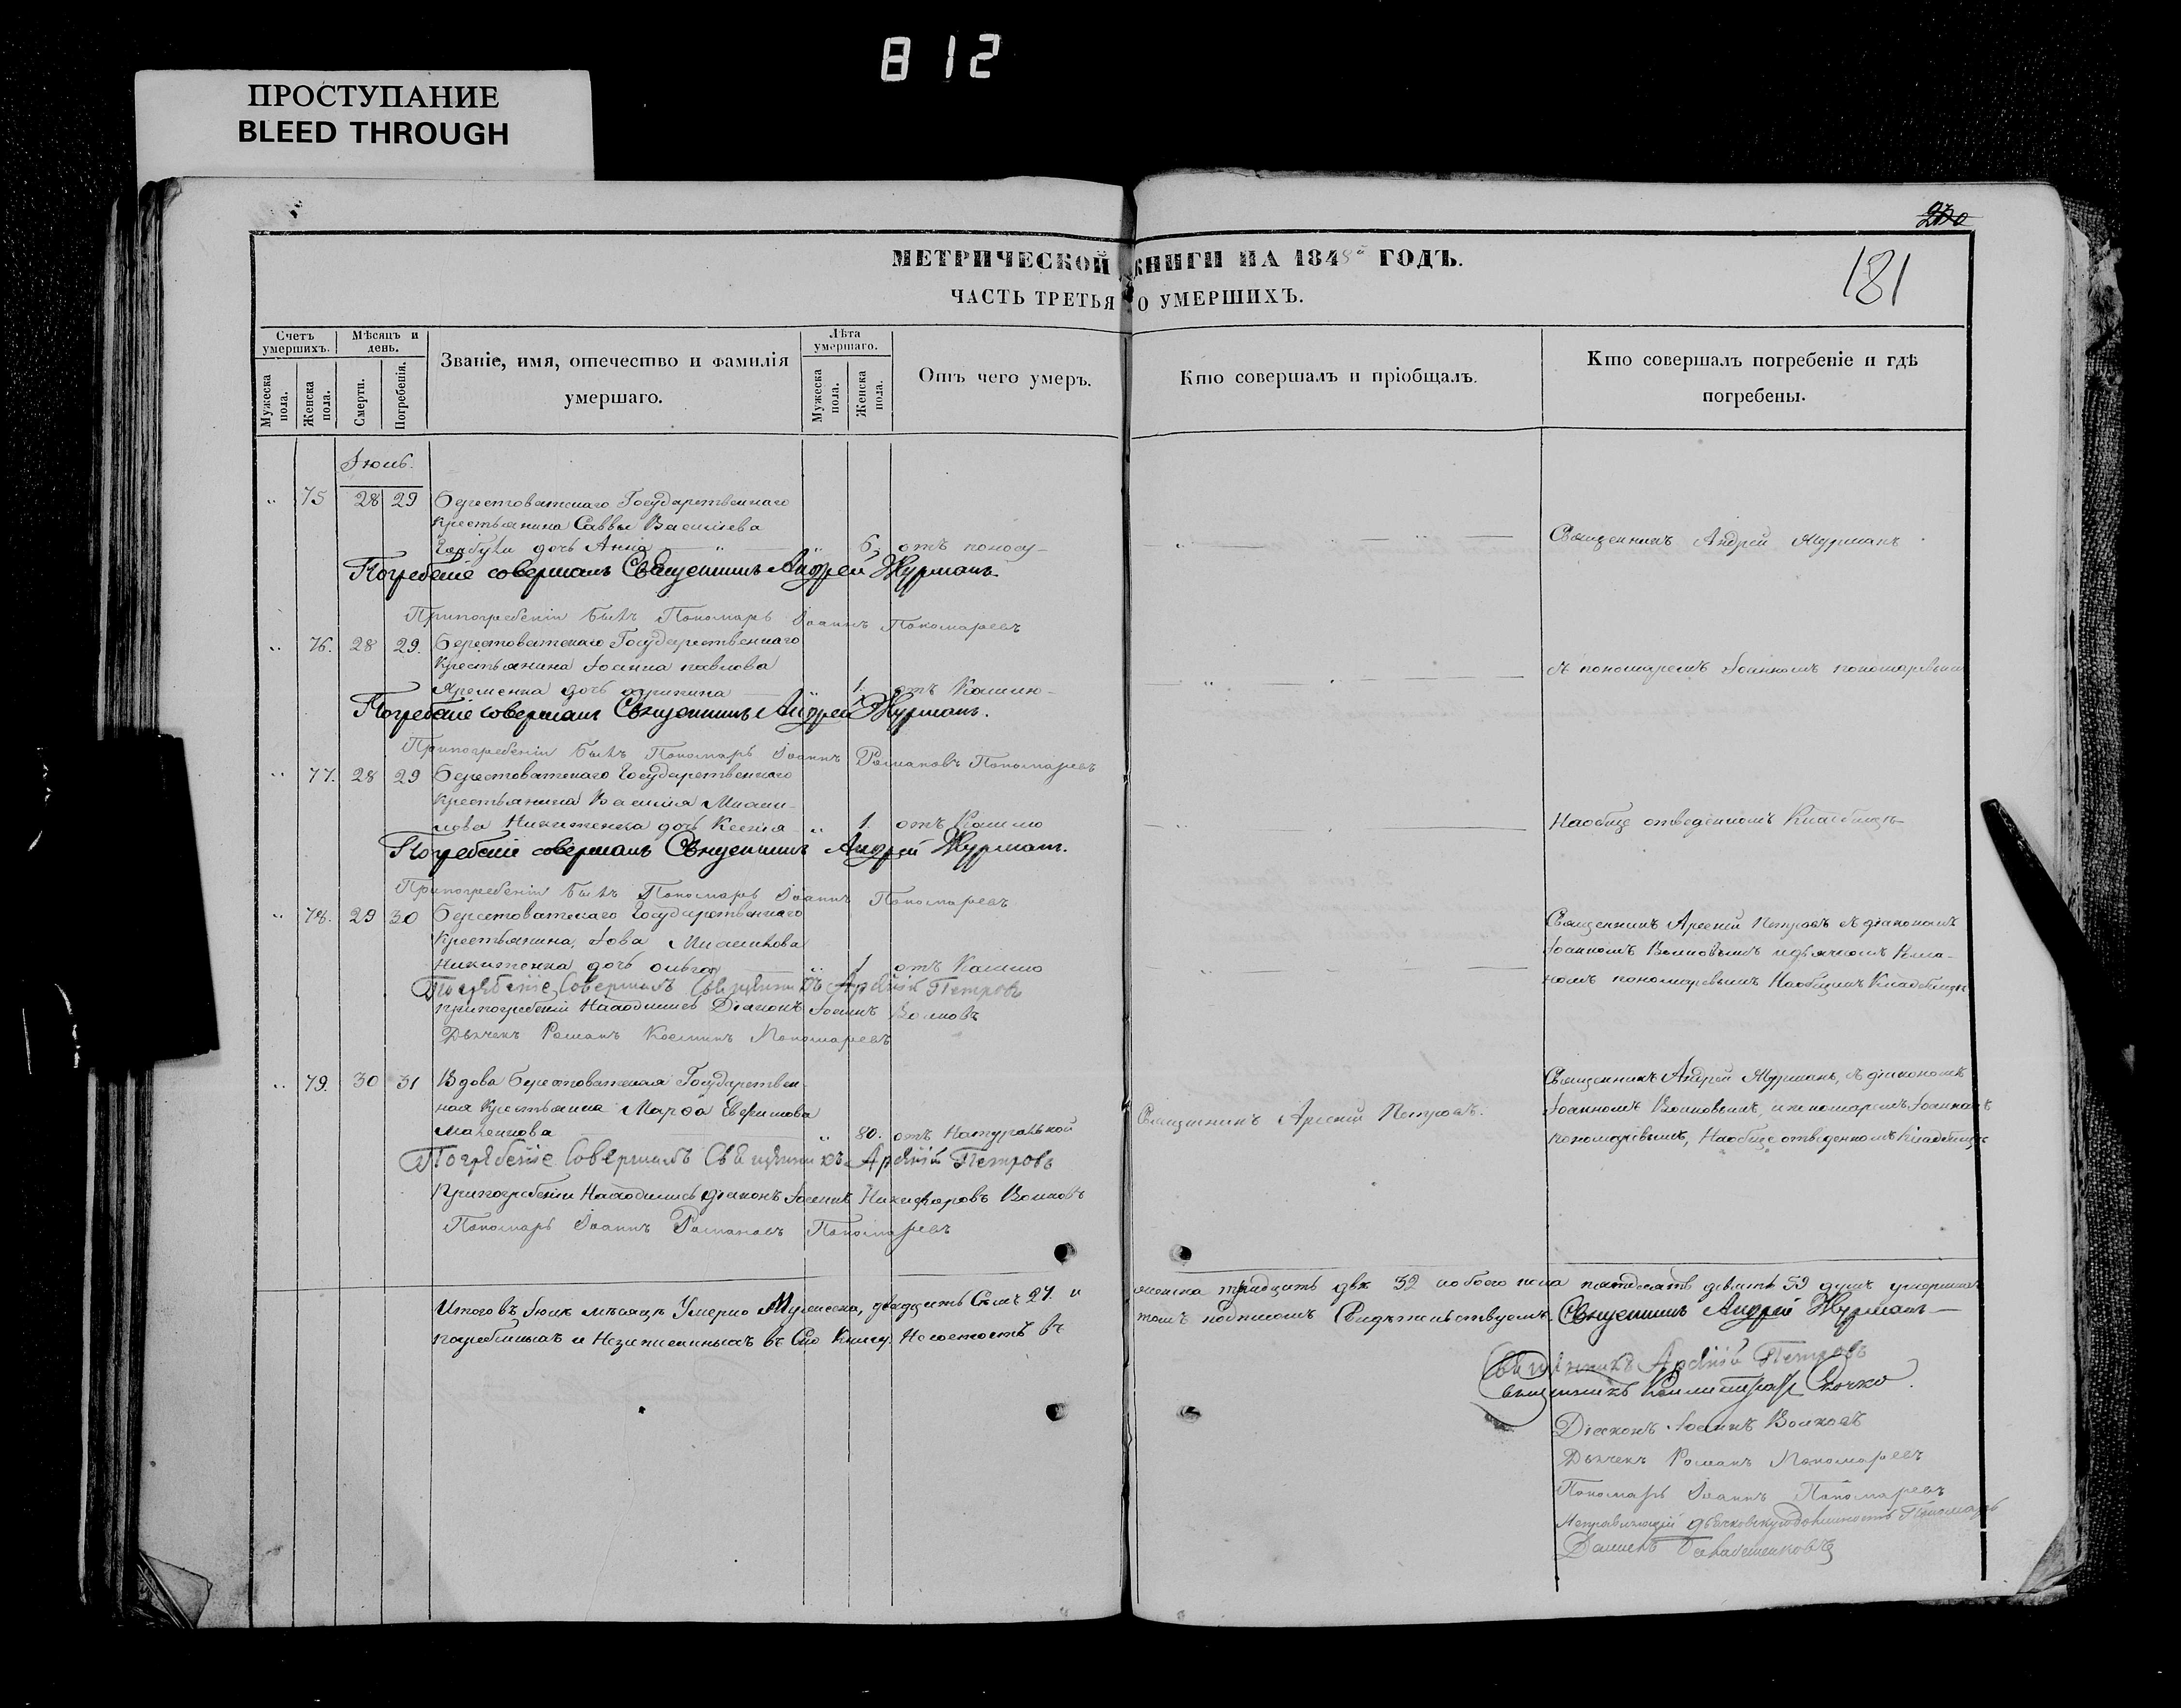 812
ПРОСТУПАНИЕ
BLEED THROUGH
МЕТРИЧЕСКОЙ КНИГИ НА 1848й ГОДЪ.
181
ЧАСТЬ ТРЕТЬЯ О УМЕРШИХЪ.
Счетъ умершихъ.
Мужеска пола.
Женска пола.
Мѣсяцъ и день.
Смерти.
Погребенія.
Званіе, имя, отечество и фамилія умершаго.
Лѣта умершаго.
Мужеска пола.
Женска пола.
Отъ чего умеръ.
Кто совершалъ и пріобщалъ.
Кто совершалъ погребеніе и гдѣ погребены.
Іюль.
75 28 29 Берестоватскаго Государственнаго
Крестьянина Саввы Васильева
дочь Анна 6. отъ поносу Священникъ Андрей Журманъ
Погребеніе совершалъ Священникъ Андрей Журманъ.
При погребеніи былъ Пономарь Іоаннъ Пономаревъ
76. 28 29. Берестоватскаго Государственнаго
Крестьянина Іоанна павлова съ пономаремъ Іоанномъ пономаревымъ
Яременка дочь 1. отъ Кашлю
Погребеніе совершалъ Священникъ Андрей Журманъ.
При погребеніи былъ Пономарь Іоаннъ Романовъ Пономаревъ
77. 28 29 Берестоватскаго Государственнаго
Крестьянина Василія Михаи-
лова Никитенка дочь Ксенія 1. отъ Кашлю На обще отведенномъ Кладбищѣ
Погребеніе совершалъ Священникъ Андрей Журманъ.
При погребеніи былъ Пономарь Іоаннъ Пономаревъ
78. 29 30 Берестоватскаго Государственнаго Священникъ Арсеній Петровъ съ діакономъ
Крестьянина Іова Михайлова Іоанномъ Волковымъ и дьячкомъ Рома-
Никитенка дочь ольга 1 отъ Кашлю номъ пономаревымъ На общемъ Кладбищѣ
Погребеніе Совершалъ Священникъ Арсеній Петровъ
При погребеніи Находились Діаконъ Іоаннъ Волковъ
Дьячекъ Романъ Косминъ Пономаревъ
79. 30 31 Вдова берестоватская Государствен- Священникъ Андрей Журманъ, съ діакономъ
ная Крестьянка Марфа Ефимова Священникъ Арсеній Петровъ. Іоанномъ Волковымъ, и пономаремъ Іоанномъ
80. отъ Натуральной пономаревымъ, На обще отведенномъ Кладбищѣ
Погребеніе Совершалъ Священникъ Арсеній Петровъ
При погребеніи Находились діаконъ Іоаннъ Никифоровъ Волковъ
Пономарь Іоаннъ Романовъ Пономаревъ
Итого въ Іюлѣ мѣсяцѣ Умерло Мужеска, двадцать Семь 27. и женска тридцать двѣ 32 а обоего пола пятдесятъ девять 59 душъ умершихъ
погребенныхъ и Незаписанныхъ въ Сію Книгу Неостоитъ въ томъ подписомъ Свидѣтельствуемъ. Священникъ Андрей Журманъ
Священникъ Арсеній Петровъ
Священникъ
Діаконъ Іоаннъ Волковъ
Дьячекъ Романъ Пономаревъ
Пономарь Іоаннъ Пономаревъ
Исправляющій дьячковскую должность Пономарь